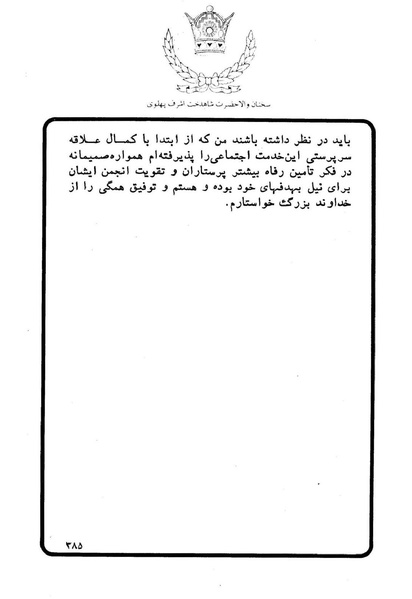 سخنان والاحضرت شاهدخت اشرف پهلوی
باید در نظر داشته باشند من که از ابتدا با کمال علاقه
سرپرستی این خدمت اجتماعی را پذیرفته‌ام همواره صمیمانه
در فکر تأمین رفاه بیشتر پرستاران و تقویت انجمن ایشان
برای نیل بهدفهای خود بوده و هستم و توفیق همگی را از
خداوند بزرگ خواستارم.
۳۸۵